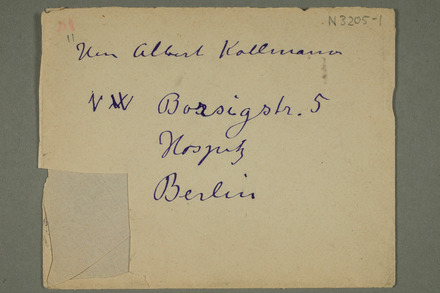 N3205-1
Herrn Albert Kollmann
NW Borsigstr. 5
Hospitz
Berlin